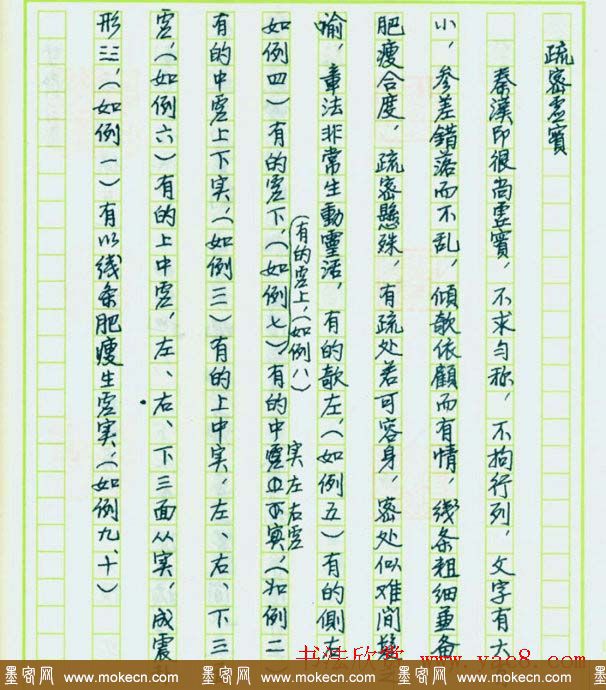 疏密虚實
秦漢印很尚虚實，不求匀称，不拘行列，文字有大
小，参差错落而不乱，傾欹依顧而有情，线条粗细兼备
肥瘦合度，疏密懸殊，有疏处若可容身，密处似难间髮之
喻，章法非常生動靈活，有的欹左，（如例五）有的側右
（有的虚上，（如例八）
如例四）有的虚下，（如例七）有的中
实左右虚
（如例二）
有的中虚上下实，（如例三）有的上中实，左、右、下三
虚，（如例六）有的上中虚，左、右、下三面从实，成震卦
形三，（如例一）有以线条肥瘦生虚实，（如例九、十）
书法欣赏 www.yac8.com
墨客网 www.mokecn.com 墨客网 www.mokecn.com 墨客网 www.mokecn.com